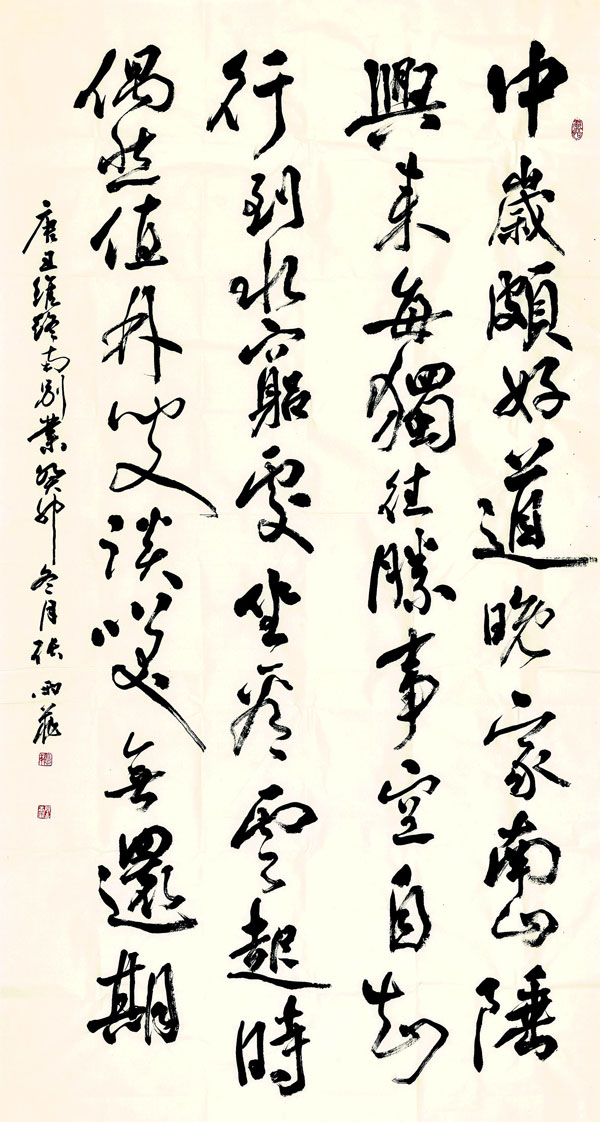 中歲頗好道晚家南山陲
興來每獨往勝事空自知
行到水窮處坐看雲起時
偶然值林叟談笑無還期
唐王維終南別業癸卯冬月張雨